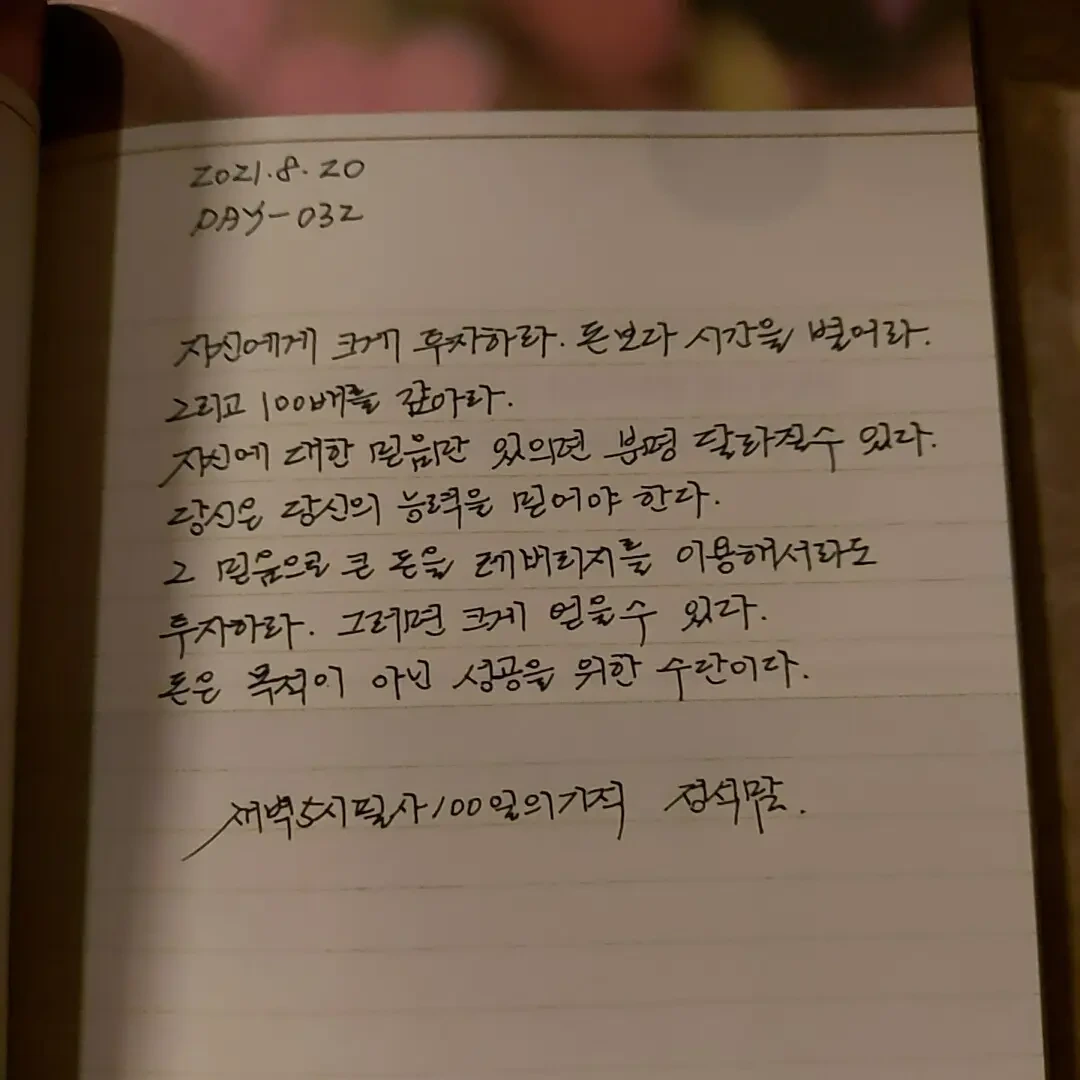 2021.8.20
DAY-032
자신에게 크게 투자하라. 돈보다 시간을 벌어라.
그리고 100배를 갚아라.
자신에 대한 믿음만 있으면 분명 달라질수 있다.
당신은 당신의 능력을 믿어야 한다.
그 믿음으로 큰 돈을 레버리지를 이용해서라도
투자하라. 그러면 크게 얻을수 있다.
돈은 목적이 아닌 성공을 위한 수단이다.
새벽5시필사100일의기적